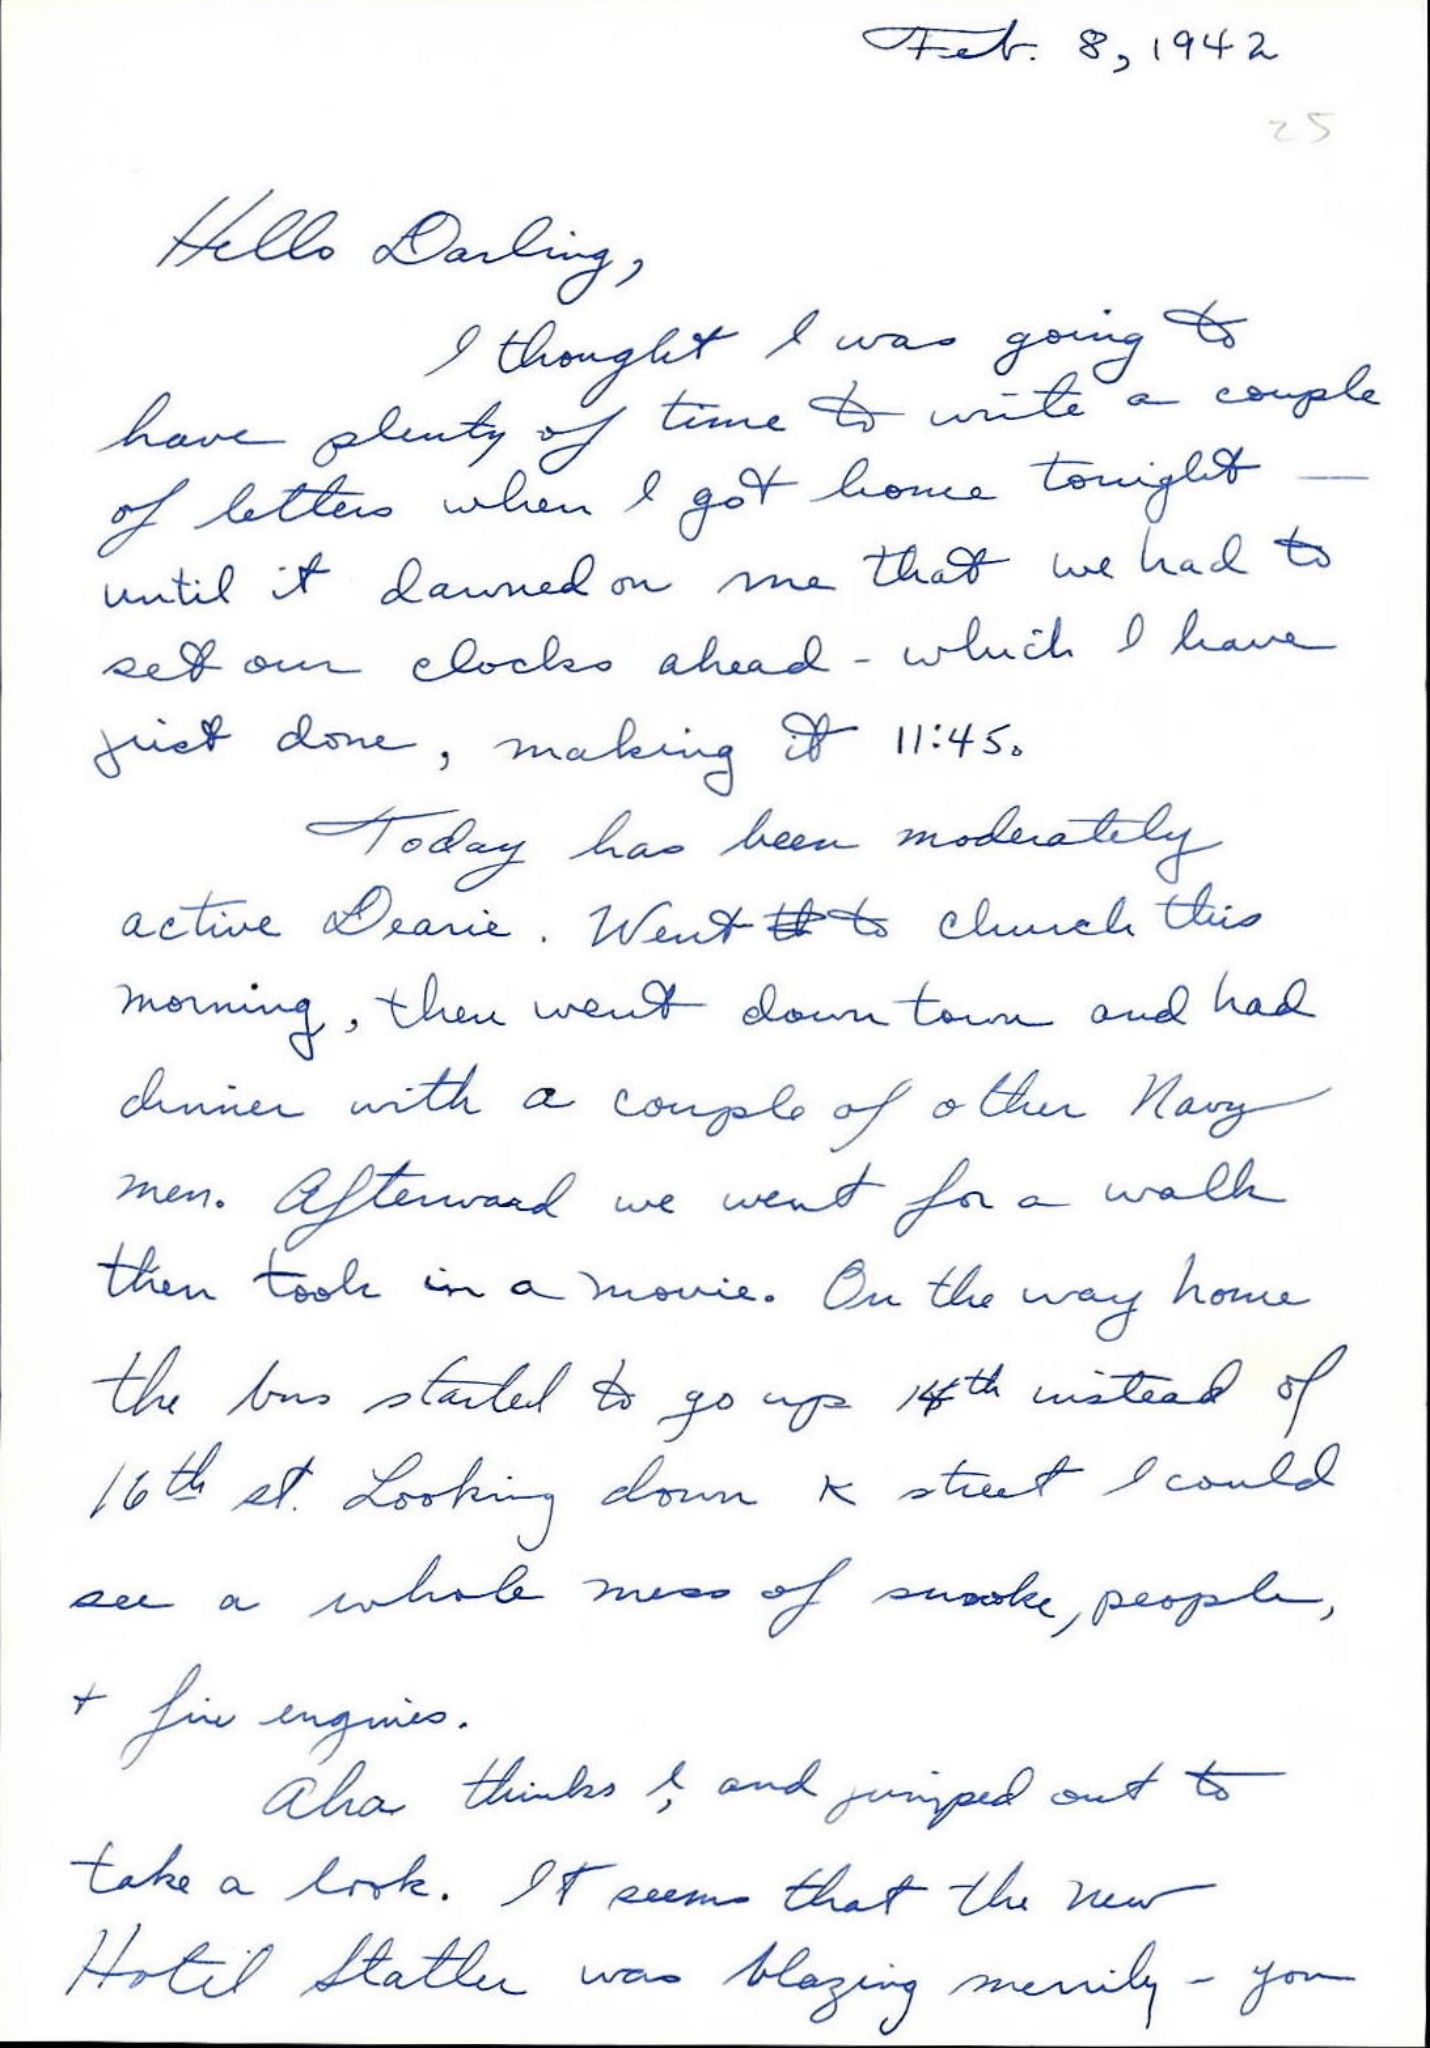 Feb. 8, 1942
25
Hello Darling,
I thought I was going to
have plenty of time to write a couple
of letters when I got home tonight —
until it dawned on me that we had to
set our clocks ahead - which I have
just done, making it 11:45.
Today has been moderately
active Dearie. Went to church this
morning, then went down town and had
dinner with a couple of other Navy
men. Afterward we went for a walk
then took in a movie. On the way home
the bus started to go up 14th instead of
16th st. Looking down K street I could
see a whole mess of smoke, people,
+ fire engines.
Aha thinks I, and jumped out to
take a look. It seems that the new
Hotel Statler was blazing merrily - you